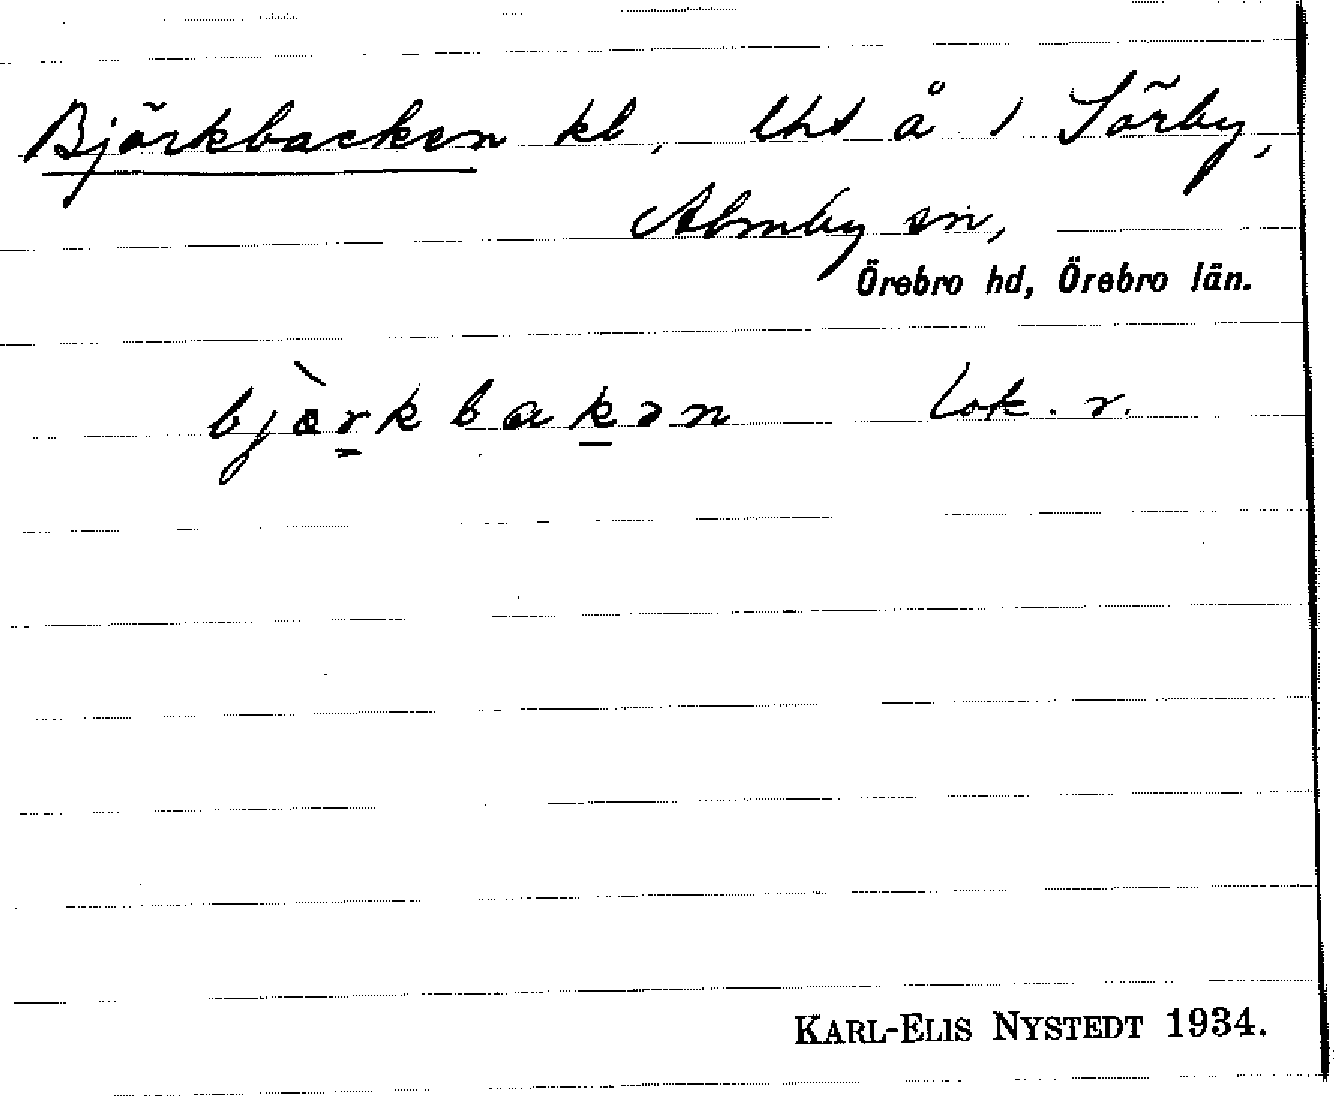 Björkbacken kl, lhs å 1 Sörby,
Almby sn,
Örebro hd, Örebro län.
bjæ̀rkbakən Lok. r.
KARL-ELIS NYSTEDT 1934.